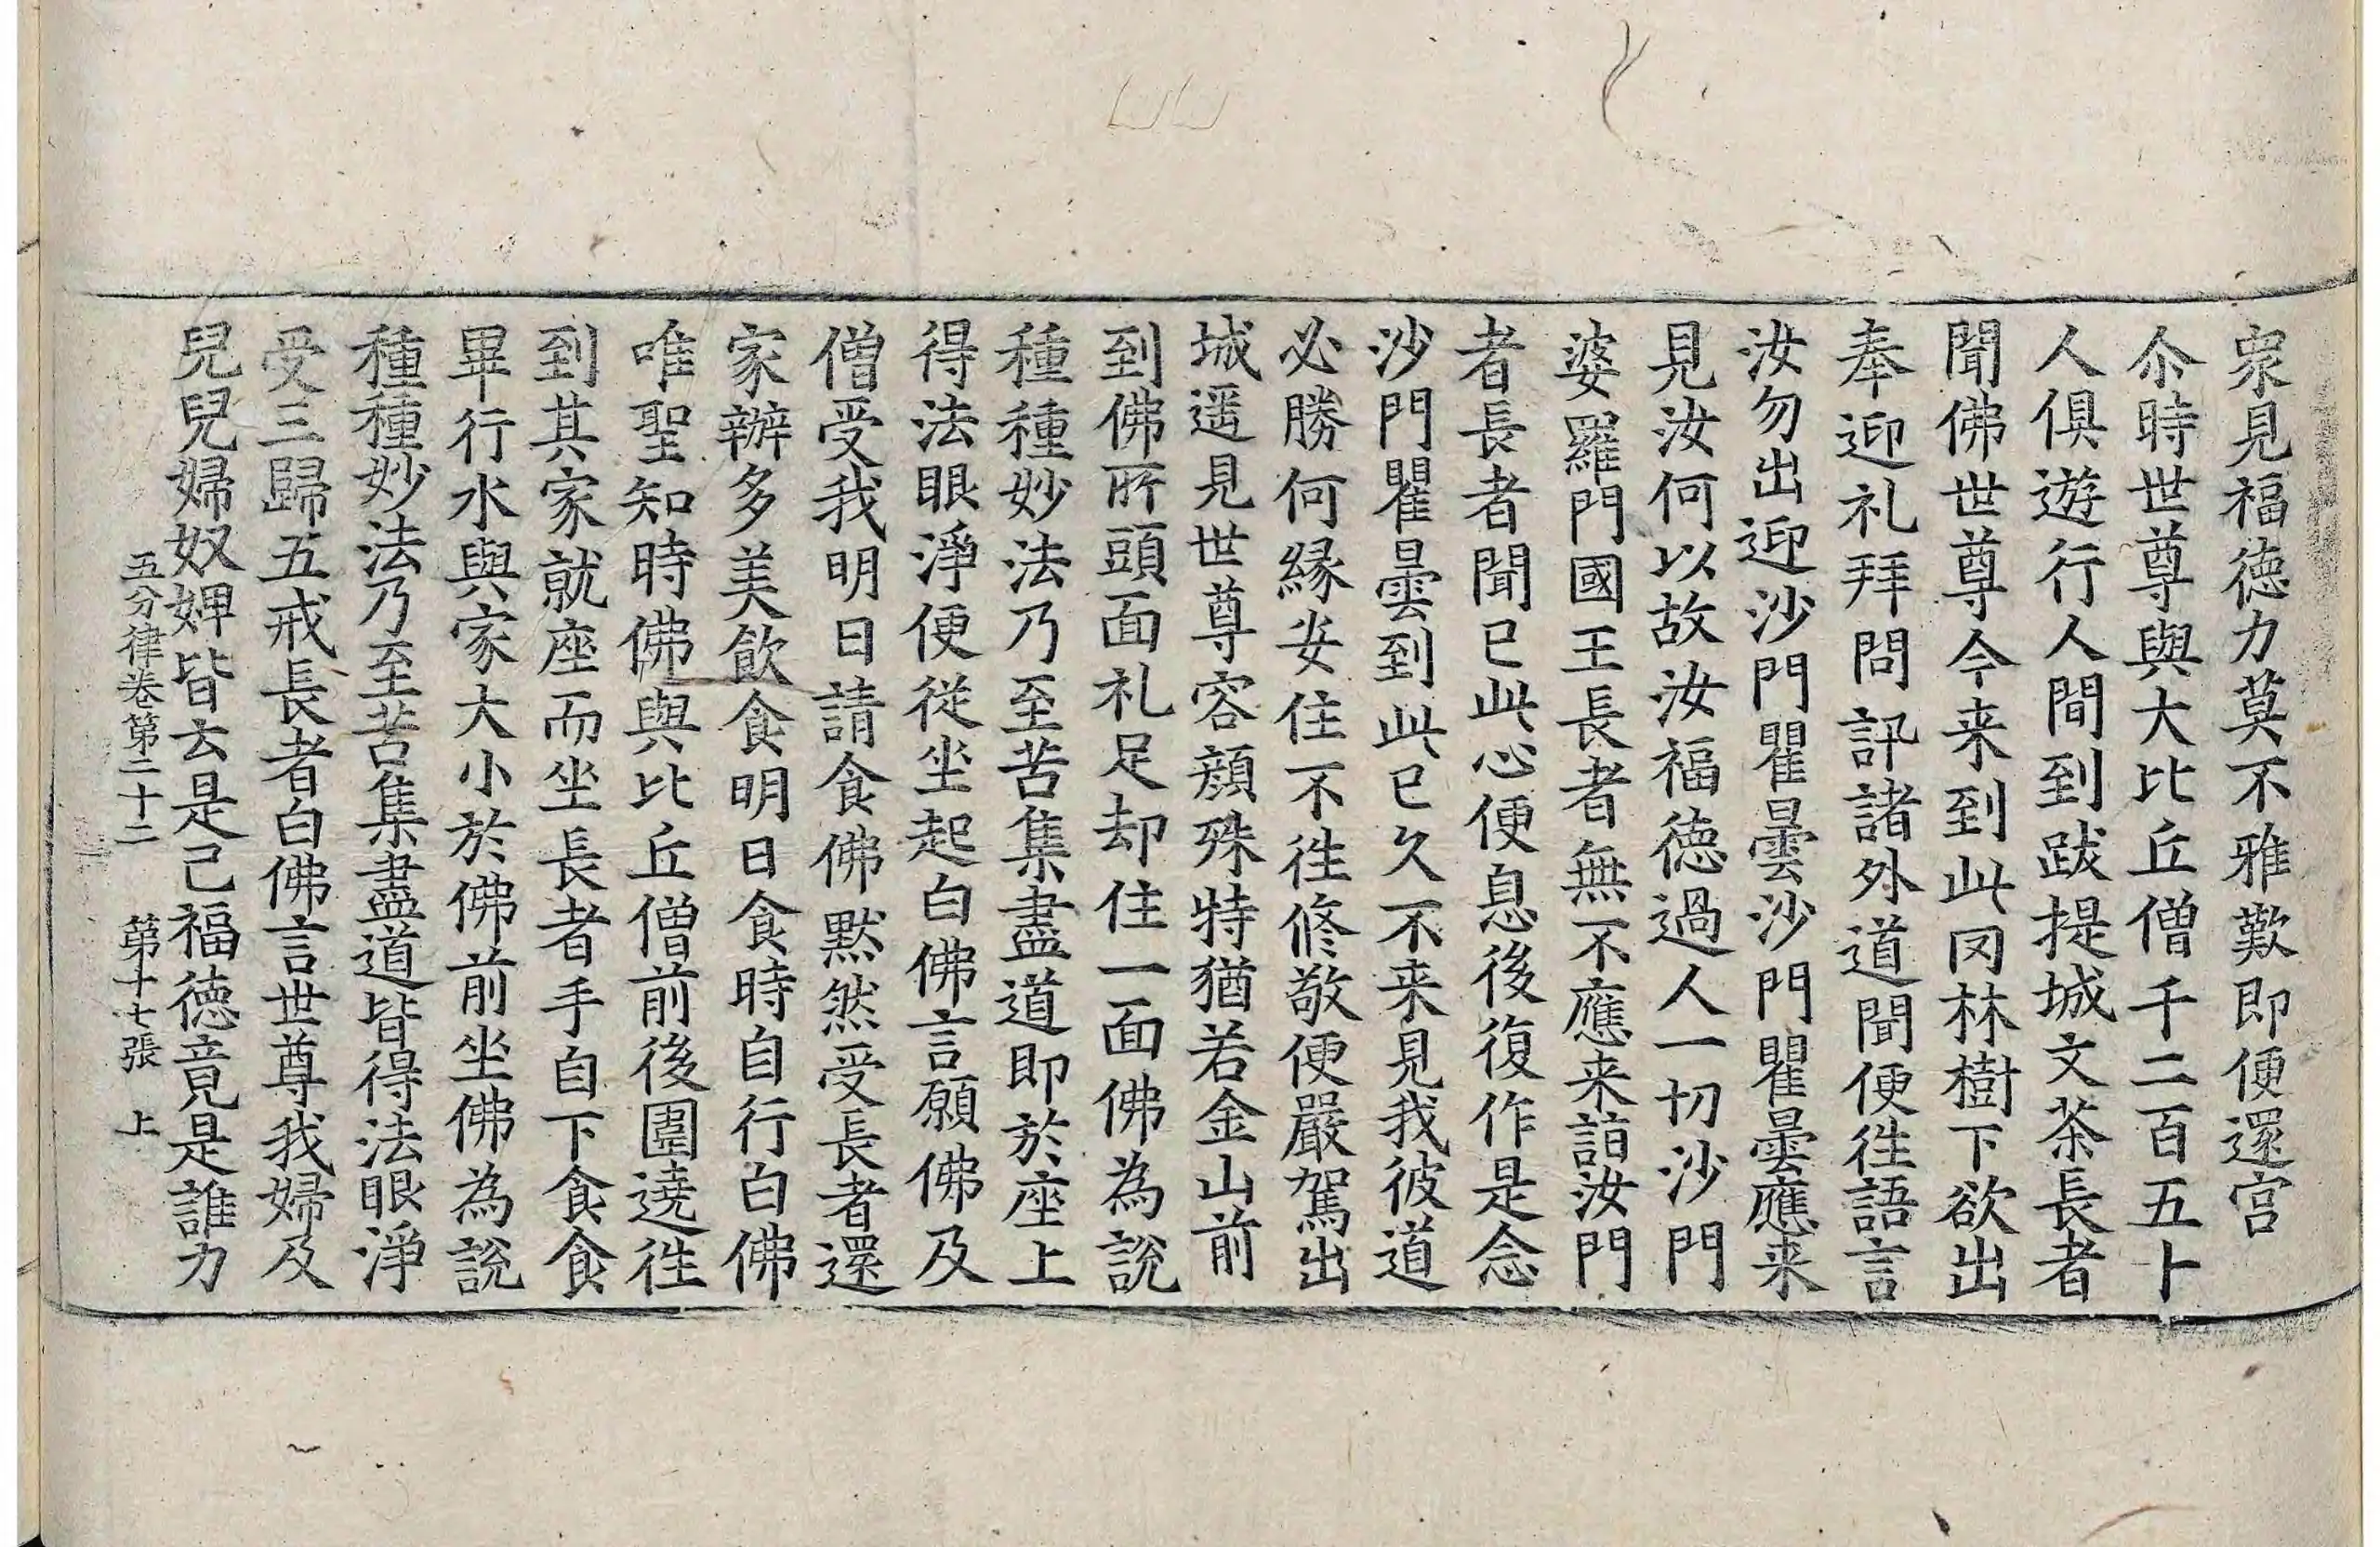 衆見福徳力莫不雅歎即便還宫
尒時世尊與大比丘僧千二百五十
人俱遊行人間到跋提城文荼長者
聞佛世尊今来到此𡇂林樹下欲出
奉迎礼拜問訊諸外道聞便徃語言
汝勿出迎沙門瞿曇沙門瞿曇應来
見汝何以故汝福徳過人一切沙門
婆羅門國王長者無不應来詣汝門
者長者聞已此心便息後復作是念
沙門瞿曇到此已久不来見我彼道
必勝何縁安住不徃修敬便嚴駕出
城遥見世尊容顔殊特猶若金山前
到佛所頭面礼足却住一面佛為説
種種妙法乃至苦集盡道即於座上
得法眼淨便從坐起白佛言願佛及
僧受我明日請食佛默然受長者還
家辦多美飲食明日食時自行白佛
唯聖知時佛與比丘僧前後圍遶徃
到其家就座而坐長者手自下食食
畢行水與家大小於佛前坐佛為説
種種妙法乃至苦集盡道皆得法眼淨
受三歸五戒長者白佛言世尊我婦及
兒兒婦奴婢皆云是己福徳竟是誰力
五分律卷第二十二　第十七張　上